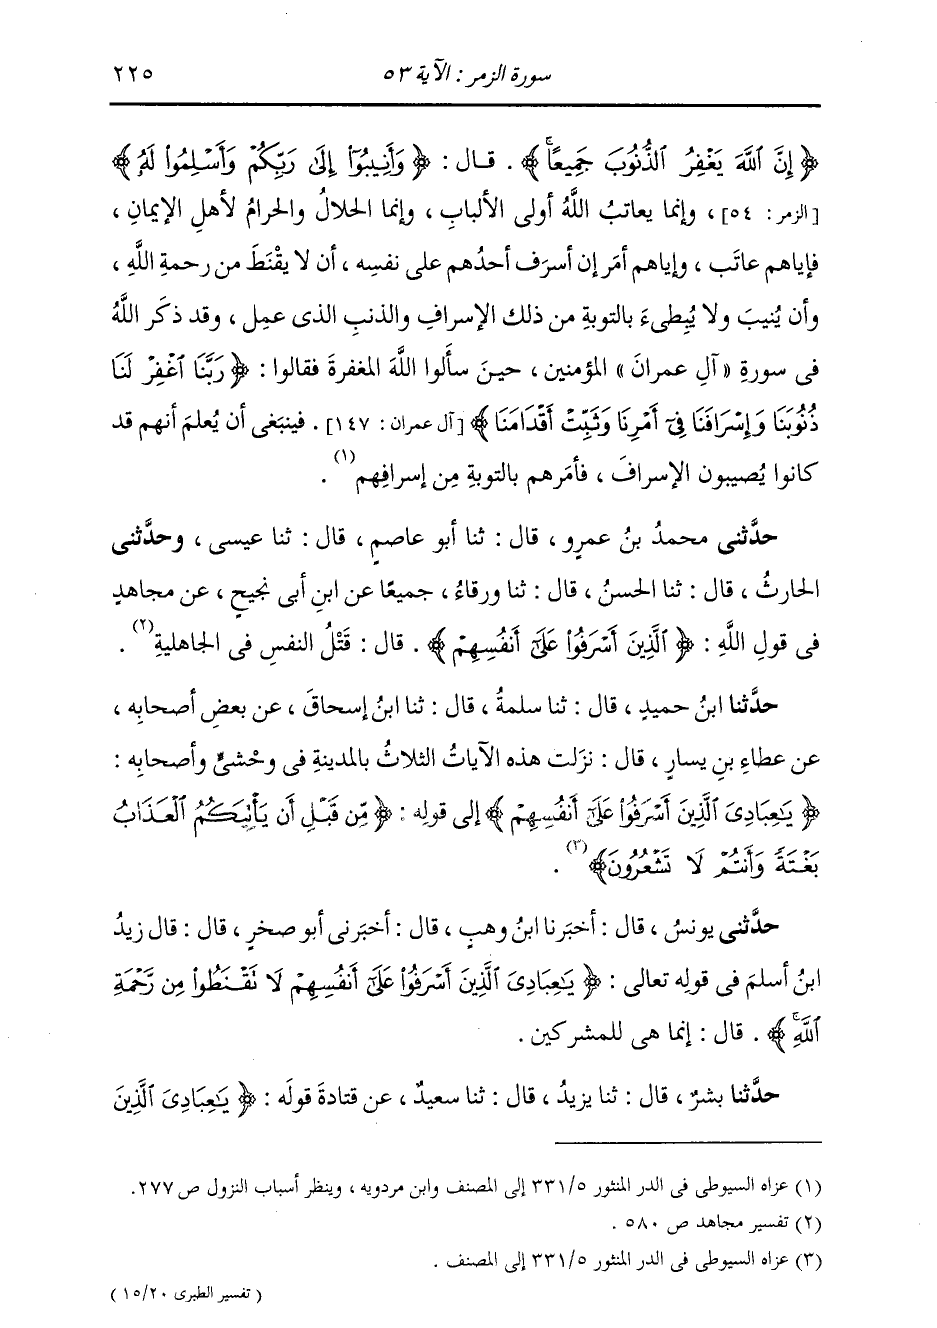 سورة الزمر : الآية ٥٣
٢٢٥
﴿ إِنَّ ٱللَّهَ يَغْفِرُ ٱلذُّنُوبَ جَمِيعًاۚ ﴾ . قـال : ﴿ وَأَنِيبُوٓا۟ إِلَىٰ رَبِّكُمْ وَأَسْلِمُوا۟ لَهُۥ ﴾
[الزمر : ٥٤] ، وإنما يعاتبُ اللَّهُ أولى الألبابِ ، وإنما الحلالُ والحرامُ لأهلِ الإيمانِ ،
فإياهم عاتَب ، وإياهم أمَر إن أسرَف أحدُهم على نفسِه ، أن لا يقْنَطَ من رحمةِ اللَّهِ ،
وأن يُنيبَ ولا يُبطىءَ بالتوبةِ من ذلك الإسرافِ والذنبِ الذى عمِل ، وقد ذكَر اللَّهُ
فى سورةِ «آلِ عمرانَ» المؤمنين ، حينَ سأَلوا اللَّهَ المغفرةَ فقالوا : ﴿ رَبَّنَا ٱغْفِرْ لَنَا
ذُنُوبَنَا وَإِسْرَافَنَا فِىٓ أَمْرِنَا وَثَبِّتْ أَقْدَامَنَا ﴾ [آل عمران : ١٤٧] . فينبَغى أن يُعلمَ أنهم قد
كانوا يُصيبون الإسرافَ ، فأمَرهم بالتوبةِ مِن إسرافِهم(١) .
حدَّثنى محمدُ بنُ عمرٍو ، قال : ثنا أبو عاصمٍ ، قال : ثنا عيسى ، وحدَّثنى
الحارثُ ، قال : ثنا الحسنُ ، قال : ثنا ورقاءُ ، جميعًا عن ابنِ أبى نجيحٍ ، عن مجاهدٍ
فى قولِ اللَّهِ : ﴿ ٱلَّذِينَ أَسْرَفُوا۟ عَلَىٰٓ أَنفُسِهِمْ ﴾ . قال : قَتْلُ النفسِ فى الجاهليةِ(٢) .
حدَّثنا ابنُ حميدٍ ، قال : ثنا سلمةُ ، قال : ثنا ابنُ إسحاقَ ، عن بعضِ أصحابِه ،
عن عطاءِ بنِ يسارٍ ، قال : نزَلت هذه الآياتُ الثلاثُ بالمدينةِ فى وحْشىٍّ وأصحابِه :
﴿ يَـٰعِبَادِىَ ٱلَّذِينَ أَسْرَفُوا۟ عَلَىٰٓ أَنفُسِهِمْ ﴾ إلى قولِه : ﴿ مِّن قَبْلِ أَن يَأْتِيَكُمُ ٱلْعَذَابُ
بَغْتَةً وَأَنتُمْ لَا تَشْعُرُونَ ﴾(٣) .
حدَّثنى يونسُ ، قال : أخبَرنا ابنُ وهبٍ ، قال : أخبَرنى أبو صخرٍ ، قال : قال زيدُ
ابنُ أسلمَ فى قولِه تعالى : ﴿ يَـٰعِبَادِىَ ٱلَّذِينَ أَسْرَفُوا۟ عَلَىٰٓ أَنفُسِهِمْ لَا تَقْنَطُوا۟ مِن رَّحْمَةِ
ٱللَّهِۚ ﴾ . قال : إنما هى للمشركين .
حدَّثنا بشرٌ ، قال : ثنا يزيدُ ، قال : ثنا سعيدٌ ، عن قتادةَ قولَه : ﴿ يَـٰعِبَادِىَ ٱلَّذِينَ
(١) عزاه السيوطى فى الدر المنثور ٣٣١/٥ إلى المصنف وابن مردويه ، وينظر أسباب النزول ص ٢٧٧.
(٢) تفسير مجاهد ص ٥٨٠ .
(٣) عزاه السيوطى فى الدر المنثور ٣٣١/٥ إلى المصنف .
( تفسير الطبرى ١٥/٢٠ )